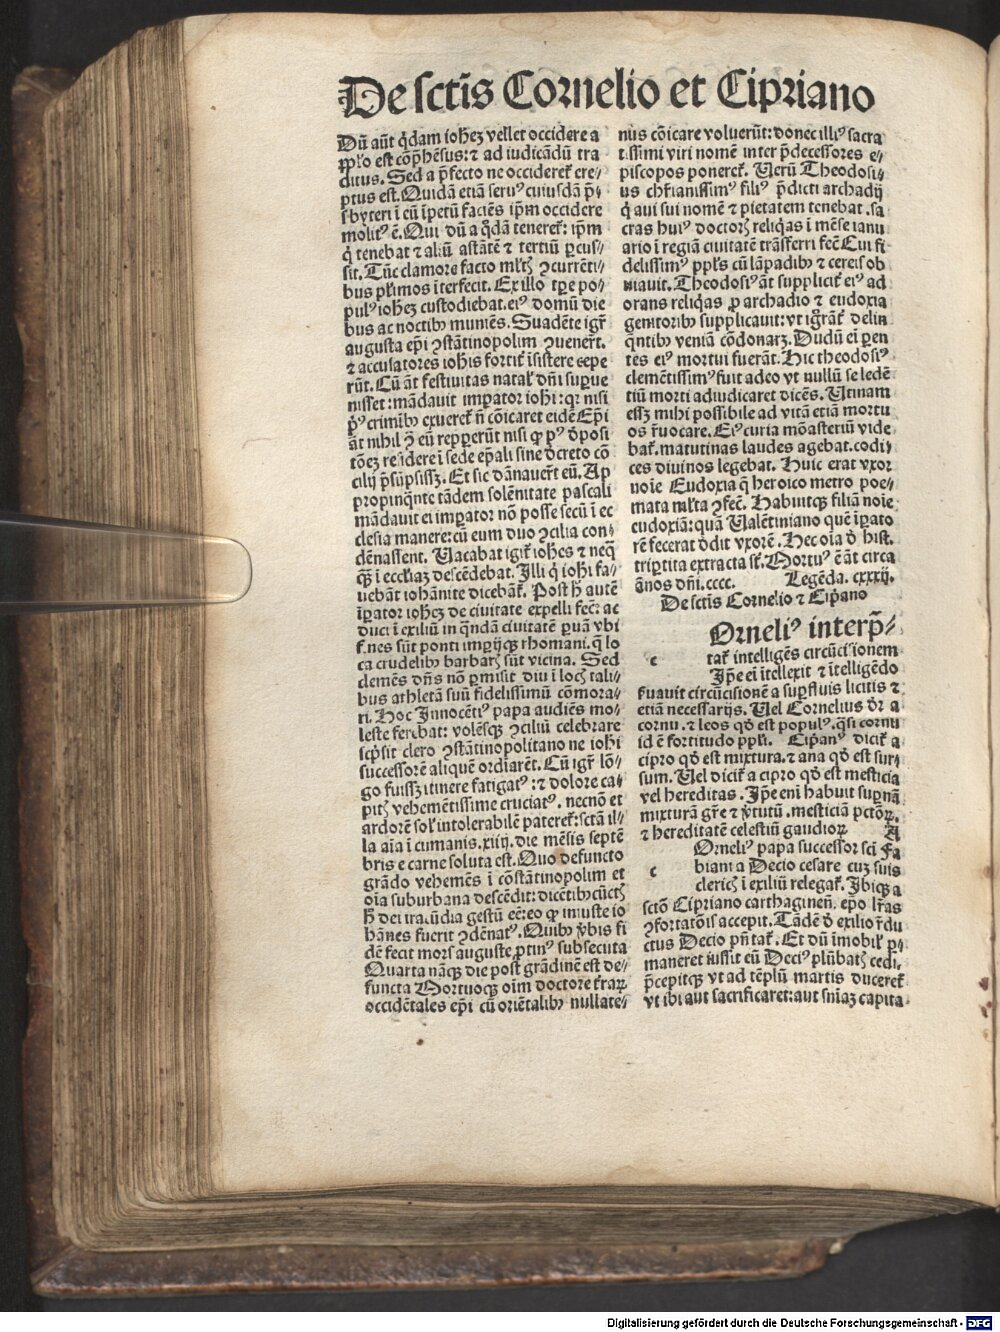 De sctīs Cornelio et Cipriano
Dū aūt q̄dam ioheȝ vellet occidere a
pp̄lo est cōp̄hēsus: ⁊ ad iudicādū tra
ditus. Sed a p̄fecto ne occidereť ere⸗
ptus est. Quidā etiā seruꝰ cuiusdā p̄⸗
sbyteri ī cū īpetū faciēs ip̄m occidere
molitꝰ ē. Qui dū a q̄dā tenereť: ip̄m
q̇ tenebat ⁊ aliū astātē ⁊ tertiū ꝑcus⸗
sit. Tūc clamore facto ml̄tꝭ ꝯcurrēti⸗
bus pl̄imos īterfecit. Ex illo tꝑe po⸗
pulꝰ ioheȝ custodiebat. eiꝰ domū die
bus ac noctibꝰ muniēs. Suadēte igr̄
augusta ep̄i ꝯstātinopolim ꝯuenerūt.
⁊ accusatores iohīs fortiť īsistere cepe
rūt. Cū āt festiuitas natal̄ dn̄i suꝑue
nisset: mādauit imꝑator iohi: qꝛ nisi
p̄ꝰ crimībꝰ exuereť n̄ cōicaret eidē Ep̄i
āt nihil ꝯ̄ eū repꝑerūt nisi ꝙ pꝰ dep̄osi
tōeȝ residere ī sede ep̄ali sine d̄creto cō
cilij p̄sūpsissȝ. Et sic dānauerūt eū. Ap
propinq̄nte tādem solēnitate pascali
mādauit ei imꝑator nō posse secū ī ec
clesia manere: cū eum duo ꝯcilia con⸗
dēnassent. Uacabat igiť ioh̄es ⁊ neqȝ
q̄ȝ ī eccl̄iaȝ descēdebat. Illi q̇ iohi fa⸗
uebāt iohānite dicebāť. Post h̄ autē
īꝑator ioheȝ de ciuitate expelli fec̄: ac
duci ī exiliū in q̄ndā ciuitatē ꝑuā vbi
f. nes sūt ponti imꝑijqȝ rhomani. q̄ lo
ca crudelibꝰ barbarꝭ sūt vicina. Sed
clemēs dn̄s nō ꝑmisit diu ī locꝭ tali⸗
bus athletā suū fidelissimū cōmora⸗
ri. Hoc Innocētiꝰ papa audiēs mo⸗
leste ferebat: volēsqȝ ꝯciliū celebrare
scp̄sit clero ꝯstātinopolitano ne iohi
successorē aliquē ordīarēt. Cū igr̄ lō⸗
go fuissȝ itinere fatigatꝰ: ⁊ dolore ca⸗
pitꝭ vehemētissime cruciatꝰ. necnō et
ardorē sol̄ intolerabilē patereť: sctā il⸗
la aīa ī cumanis. xiiij. die mēsis septē
bris e carne soluta est. Quo defuncto
grādo vehemēs ī cōstātinopolim et
oīa suburbana descēdit: dicētibꝰ cūctꝭ
h̄ dei iracūdia gestū eē: eo ꝙ iniuste io
hānes fuerit ꝯdēnatꝰ. Quibꝰ v̄bis fi
dē fecit mors auguste ꝓtinꝰ subsecuta
Quarta nāqȝ die post grādinē est de⸗
functa Mortuoqȝ oīm doctore terraꝝ
occidētales ep̄i cū oriētalibꝰ nullate⸗
nus cōicare voluerūt: donec illiꝰ sacra
tissimi viri nomē inter p̄decessores e⸗
piscopos ponereť. Uerū Theodosi⸗
us chr̄ianissimꝰ filiꝰ p̄dicti archadij
q̇ aui sui nomē ⁊ pietatem tenebat. sa
cras huiꝰ doctorꝭ reliq̄as ī mēse ianu
ario ī regiā ciuitatē trāsferri fec̄ Cui fi
delissimꝰ ppl̄s cū lāpadibꝰ ⁊ cereis ob
uiauit. Theodosiꝰ āt suppliciť eiꝰ ad
orans reliq̄as ꝓ archadio ⁊ eudoxia
genitoribꝰ supplicauit: vt igrāť delin
q̄ntibꝰ veniā cōdonarȝ. Dudū ei ꝑen
tes eiꝰ mortui fuerāt. Hic theodosiꝰ
clemētissimꝰ fuit adeo vt nullū se ledē
tiū morti adiudicaret dicēs. Utinam
essȝ mihi possibile ad vitā etiā mortu
os r̄uocare. Eiꝰ curia mōasteriū vide
baf̄. matutinas laudes agebat. codi⸗
ces diuinos legebat. Huic erat vxor
noīe Eudoxia q̄ heroico metro poe⸗
mata ml̄ta ꝯfec̄. Habuitqȝ filiā noīe
eudoxiā: quā Ualētiniano quē īꝑato
rē fecerat d̄dit vxorē. Hec oīa d̄ hist.
triꝑtita extracta sť. Mortuꝰ ē āt circa
ānos dn̄i. cccc. Legēda. cxxxij.
De sctīs Cornelio ⁊ Cip̄ano
Orneliꝰ interp̄⸗
c taf̄ intelligēs circūcisionem
Ip̄e ei ītellexit ⁊ ītelligēdo
seruauit circūcisionē a suꝑfluis licitis ⁊
etiā necessarijs. Uel Cornelius dr̄ a
cornu. ⁊ leos qd̄ est populꝰ. q̄si cornu
id ē fortitudo ppl̄i. Cip̄anꝰ diciť a
cipro qd̄ est mixtura. ⁊ ana qd̄ est sur⸗
sum. Uel diciť a cipro qd̄ est mesticia
vel hereditas. Ip̄e enī habuit suꝑnā
mixturā gr̄e ⁊ v̄tutū. mesticiā pctōꝝ.
⁊ hereditatē celestiū gaudioꝝ A
Orneliꝰ papa successor sci Fa
c biani a Decio cesare cuȝ suis
clericꝭ ī exiliū relegaf̄. Ibiqȝ a
sctō Cipriano carthaginen̄. epo lr̄as
ꝯfortatōis accepit. Tādē d̄ exilio r̄du
ctus Decio pn̄taf̄. Et dū īmobil̄ ꝑ⸗
maneret iussit eū Deciꝰ plūbatꝭ cedi.
p̄cepitqȝ vt ad tēplū martis ducereť
vt ibi aut sacrificaret: aut sn̄iaȝ capita⸗
Digitalisierung gefördert durch die Deutsche Forschungsgemeinschaft - DFG